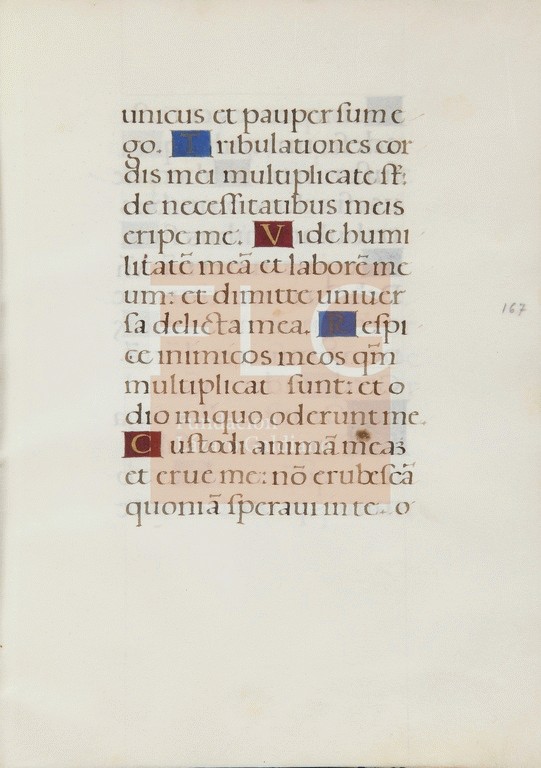 unicus et pauper sum e
go. Tribulationes cor
dis mei multiplicate st̄:
de necessitatibus meis
eripe me. Vide humi
litatē meā et laborē me
um: et dimitte univer
sa delicta mea. Respi
ce inimicos meos qm̄
multiplicat sunt: et o
dio iniquo oderunt me.
Custodi animā meaʒ
et erue me: nō erubescā
quoniā speraui in te. o
167
FLC
Fundación